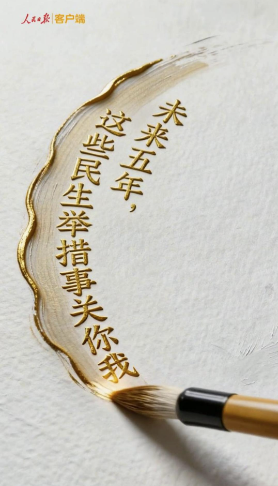 人民日报 客户端
未来五年，
这些民生举措事关你我